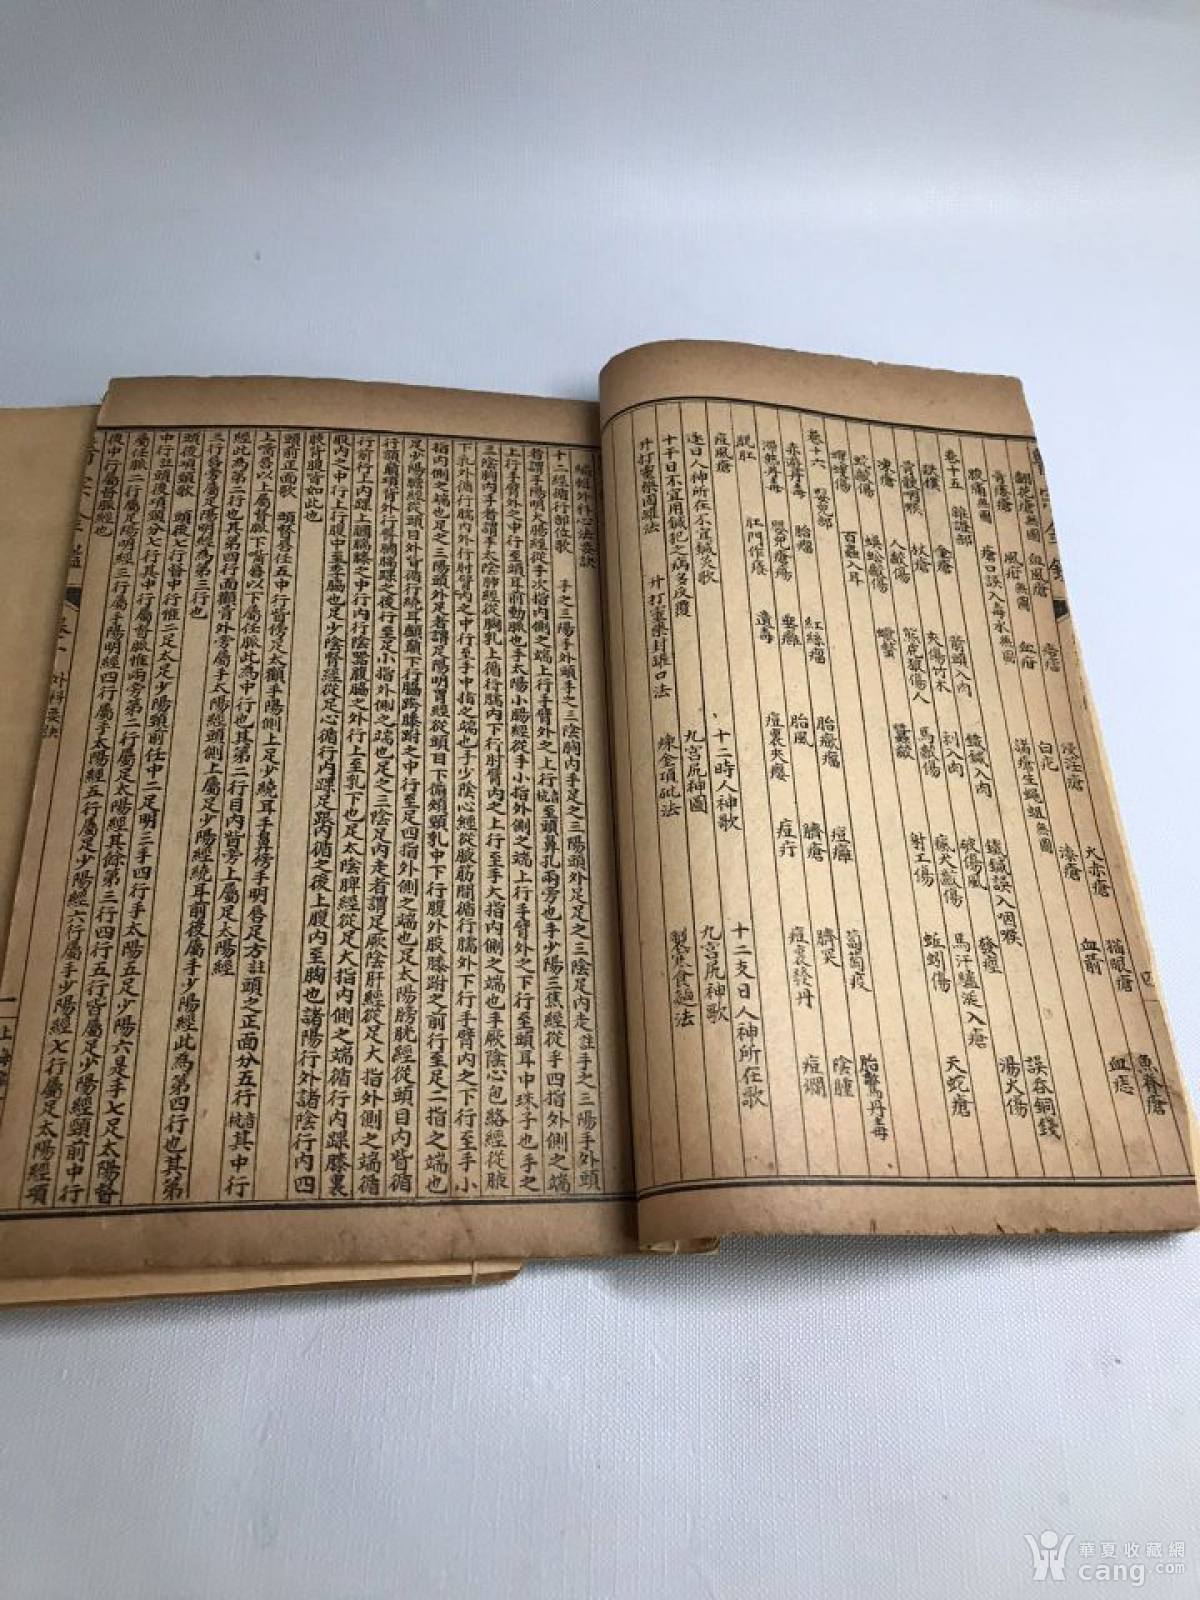 魚脊瘡
四
猫眼瘡 血痣
火赤瘡 血箭
浸淫瘡 湊瘡
翻花瘡無圖 血風瘡 痞㿔 白疕
骨瘻瘡無圖 風疳無圖 血疳 諸瘡生蠅蛆無圖
腋痛無圖 瘡口誤入毒水無圖
卷十五 雜證部
金瘡 箭頭入肉 鐵鍼入肉 鐵鍼誤入咽喉 誤吞銅錢
跌撲 杖瘡 夾傷 竹木刺入肉 破傷風 發痙 湯火傷
骨骾咽喉
凍瘡 人齩傷 熊虎狼傷人 馬齩傷 瘋犬齩傷 馬汗驢涎入瘡
蛇齩傷 蜈蚣齩傷 蠍螫 射工傷 蚯蚓傷 天蛇瘡
蠼螋傷 百蟲入耳
卷十六 嬰兒部
赤遊丹毒 胎瘤 紅絲瘤 胎癥瘤 痘癰 葡萄疫 胎驚丹毒
滯熱丹毒 嬰兒瘡瘍 嬰癰 胎風 臍瘡 臍突 陰腫
脫肛 肛門作癢 遺毒 痘裏夾瘿 痘疔 痘裏發丹 痘爛
痘風瘡
逐日人神所在不宜鍼灸歌 十二時人神歌 十二支日人神所在歌
十干日不宜用鍼犯之病多反覆 九宮尻神圖 九宮尻神歌
升打靈藥固罐法 升打靈藥封罐口法 煉金頂砒法 製寒食麵法
編輯外科心法要訣
十二經循行部位歌 手之三陽手外頭手之三陰胸內手足之三陽頭外足足之三陰足內走註手之三陽手外頭
者謂手陽明大腸經從手次指內側之端上行手臂外之上行至頭鼻孔兩旁也手少陽三焦經從手四指外側之端
上行手臂外之中行至頭耳前動脈也手太陽小腸經從手小指外側之端上行手臂外之下行至頭耳中珠子也手之
三陰胸內手者謂手太陰肺經從胸乳上循行臑內下行肘臂內之上行至手大指內側之端也手厥陰心包絡經從腋
下乳外循行臑內下行肘臂內之中行至手中指之端也手少陰心經從腋筋間循行臑外下行手臂內之下行至手小
指內側之端也足之三陽頭外足者謂足陽明胃經從頭目下循頰頸乳中下行腹外股膝跗之前行至足二指之端也
足少陽膽經從頭目外眥循行繞耳顱顖下行脇胯膝跗之中行至足四指外側之端也足太陽膀胱經從頭目內眥循
行額顛項背外行臀膕腨踝之後行至足小指外側之端也足之三陰足內走者謂足厥陰肝經從足大指外側之端循
行前行上內踝上膕膝股之中行內行陰器腹脇之外行上至乳下也足太陰脾經從足大指內側之端循行內踝膝裏
股內之中行上行腹中至季脇也足少陰腎經從足心循行內踝足跟內循之後上腹內至胸也諸陽行外諸陰行內四
肢背腹皆如此也
頭前正面歌 頭督唇任五中行眥傍足太顴手陽側上足少繞耳手鼻傍手明唇足方註頭之正面分五行其中行
上嘴唇以上屬督脈下嘴唇以下屬任脈此為中行也其第二行目內眥旁上屬足太陽經
經此為第二行也其第四行面顴骨外旁屬手太陽經頭側上屬足少陽經繞耳前後屬手少陽經此為第四行也其第
三行鼻旁屬手陽明經為第三行也
頭後項頸歌 頭後七行督中行惟二足太足少陽頸前任中二足明三手四行手太陽五足少陽六是手七足太陽督
中行註頭後項頸分七行其中行屬督脈惟兩旁第二行屬足太陽經其餘第三行四行五行皆屬足少陽經頸前中行
屬任脈二行屬足陽明經三行屬手陽明經四行屬手太陽經五行屬足少陽經六行屬手少陽經七行屬足太陽經項
後中行屬督脈經也
醫宗金鑑 卷一 外科要訣 一
華夏收藏網
cang.com